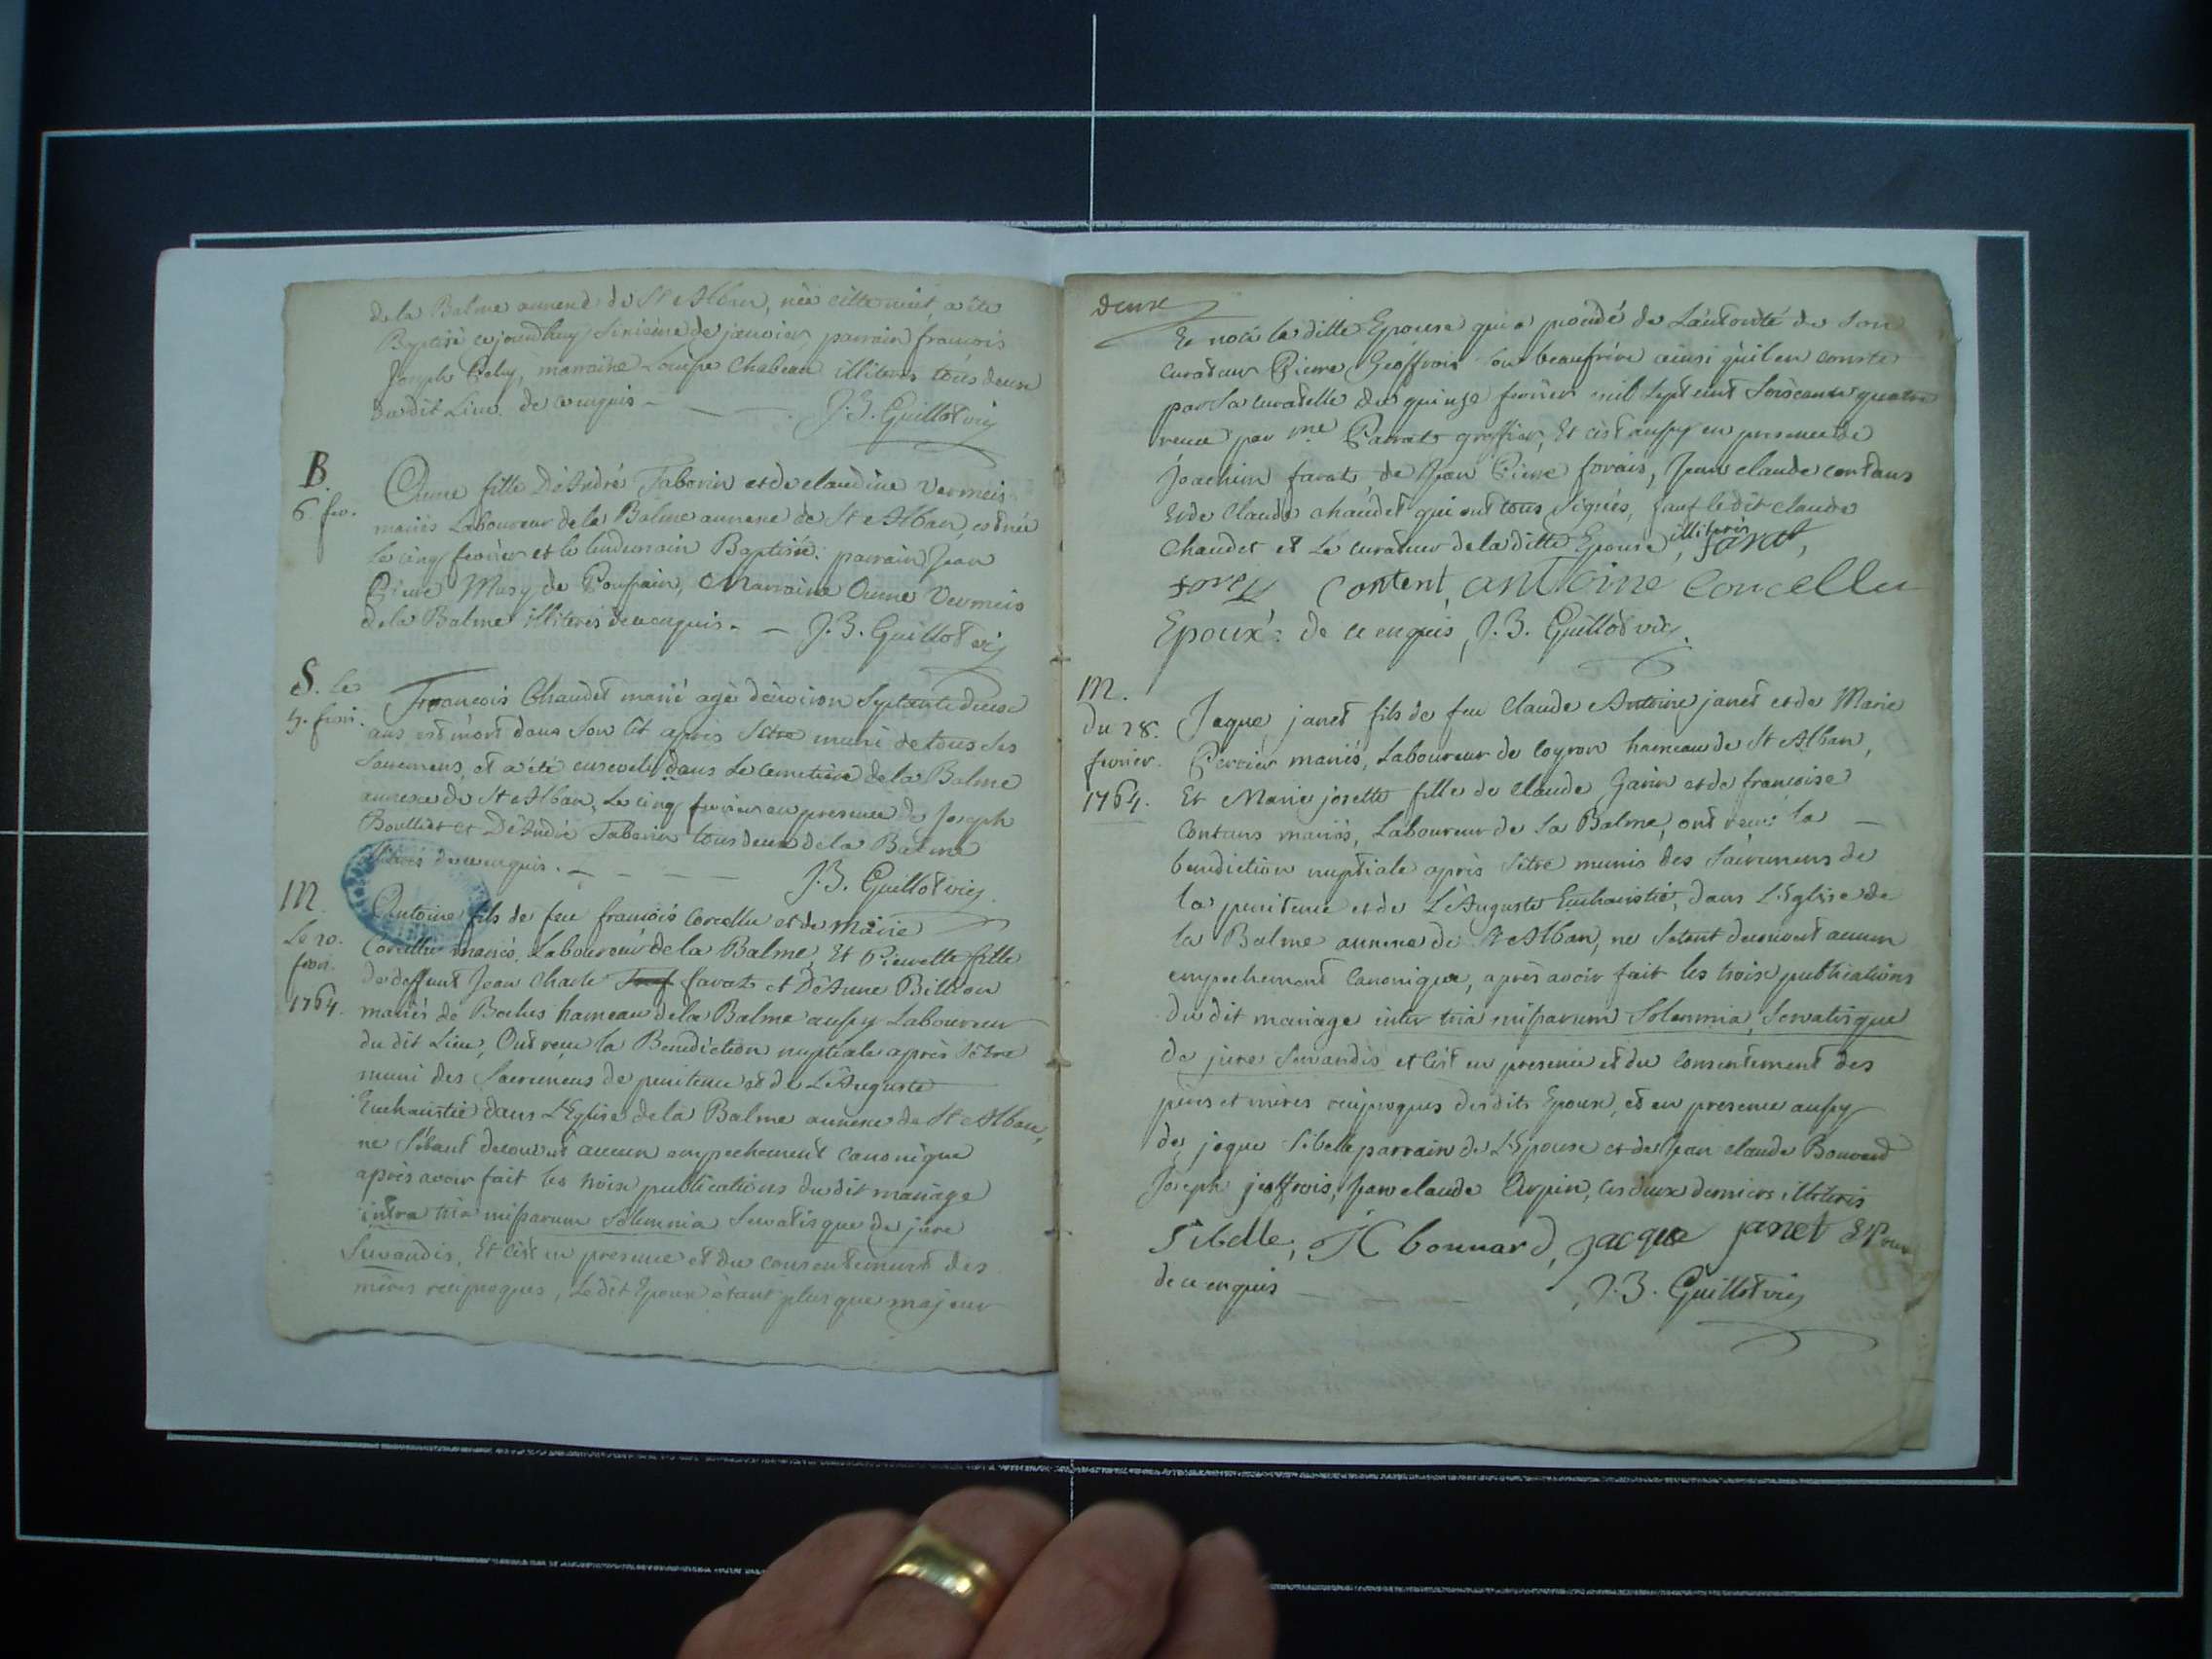 de la Balme annexe de St Alban, née cette nuit, a été
Baptisé cejourdhuy Sixième de janvier parrain francois
Joseph marraine Louise Chabeau illiteres tous deux
dudit Lieu. de ce enquis - J. B. Guillot vic
B.
6. fev.
Anne fille D'André Taborin et de claudine Vermeis
mariés Laboureur de la Balme annexe de St Alban, est née
Le cinq fevrier et le lendemain Baptisée: parrain Jean
Pierre Musy de Poussain, Marraine Anne Vermeis
de la Balme illiterés de ce enquis. - J. B. Guillot vic
S. le
5. fevri.
François Chaudet marié agé d'environ Septante deux
ans est mort dans Son lit après S'etre muni de tous Ses
Sacremens, et a été enseveli dans Le Cemetière de la Balme
annexe de St Alban, Le cinq fevrier en presence de Joseph
Boulliet et D'André Taborin tous deux de la Balme
illiterés de ce enquis. - J. B. Guillot vic.
M.
Le 20.
fevri.
1764.
Antoine fils de feu francois Corcellu et de Marie
Corcellu mariés, Laboureur de la Balme, Et Pierrette fille
de deffunt Jean Charle favat et D'Anne Billion
mariés de hameau de la Balme aussy Laboureur
du dit Lieu, Ont reçu la Benediction nuptiale après S'etre
muni des Sacremens de penitence et de L'Auguste
Euchaistie dans L'Eglise de la Balme annexe de St Alban,
ne S'étant decouvert aucun empechement Canonique
après avoir fait les trois publications du dit mariage
intra tria missarum Solemnia Servatisque de jure
Servandis, Et c'est en presence et du consentement des
mères reciproques, Ledit Epoux étant plus que majeur
deux
Et non la ditte Epouse qui a procédé de L'autorité de Son
curateur Pierre Geoffrois Son beaufrère ainsi qu'il en conste
par la curatelle du quinze fevrier mil Sept cent Soixante quatre
recue par me greffier, Et c'est aussy en presence de
Joachim favat de Jean Pierre forais, Jean claude contans
Et de Claude chaudet qui ont tous Signés, Sauf ledit claude
Chaudet et Le curateur de la ditte Epouse, illiterés favat,
forey Content, antoine Corcellu
Epoux: de ce enquis, J. B. Guillot vic.
M.
du 28.
fevrier.
1764.
Jaque janet fils de feu Claude Antoine janet et de Marie
Perrier mariés, Laboureur de Coyron hameau de St Alban,
Et Marie josette fille de claude Garin et de francoise
Contans mariés, Laboureur de la Balme, ont reçus la -
benediction nuptiale après S'etre munis des Sacremens de
la penitence et de L'Auguste Euchaistie, dans L'Eglise de
la Balme annexe de St Alban, ne S'etant decouvert aucun
empechement Canonique, après avoir fait les trois publications
du dit mariage inter tria missarum Solemnia, Servatisque
de jure Servandis et c'est en presence et du Consentement des
pères et mères reciproques desdits Epoux, et en presence aussy
de jaque Sibelle parrain de L'Epouse et de Jean claude Bonnard
Joseph jeoffrois, Jean claude Arpin, ces deux derniers illiterés
Sibelle, JC bonnard, jacque janet Epoux
de ce enquis - J. B. Guillot vic